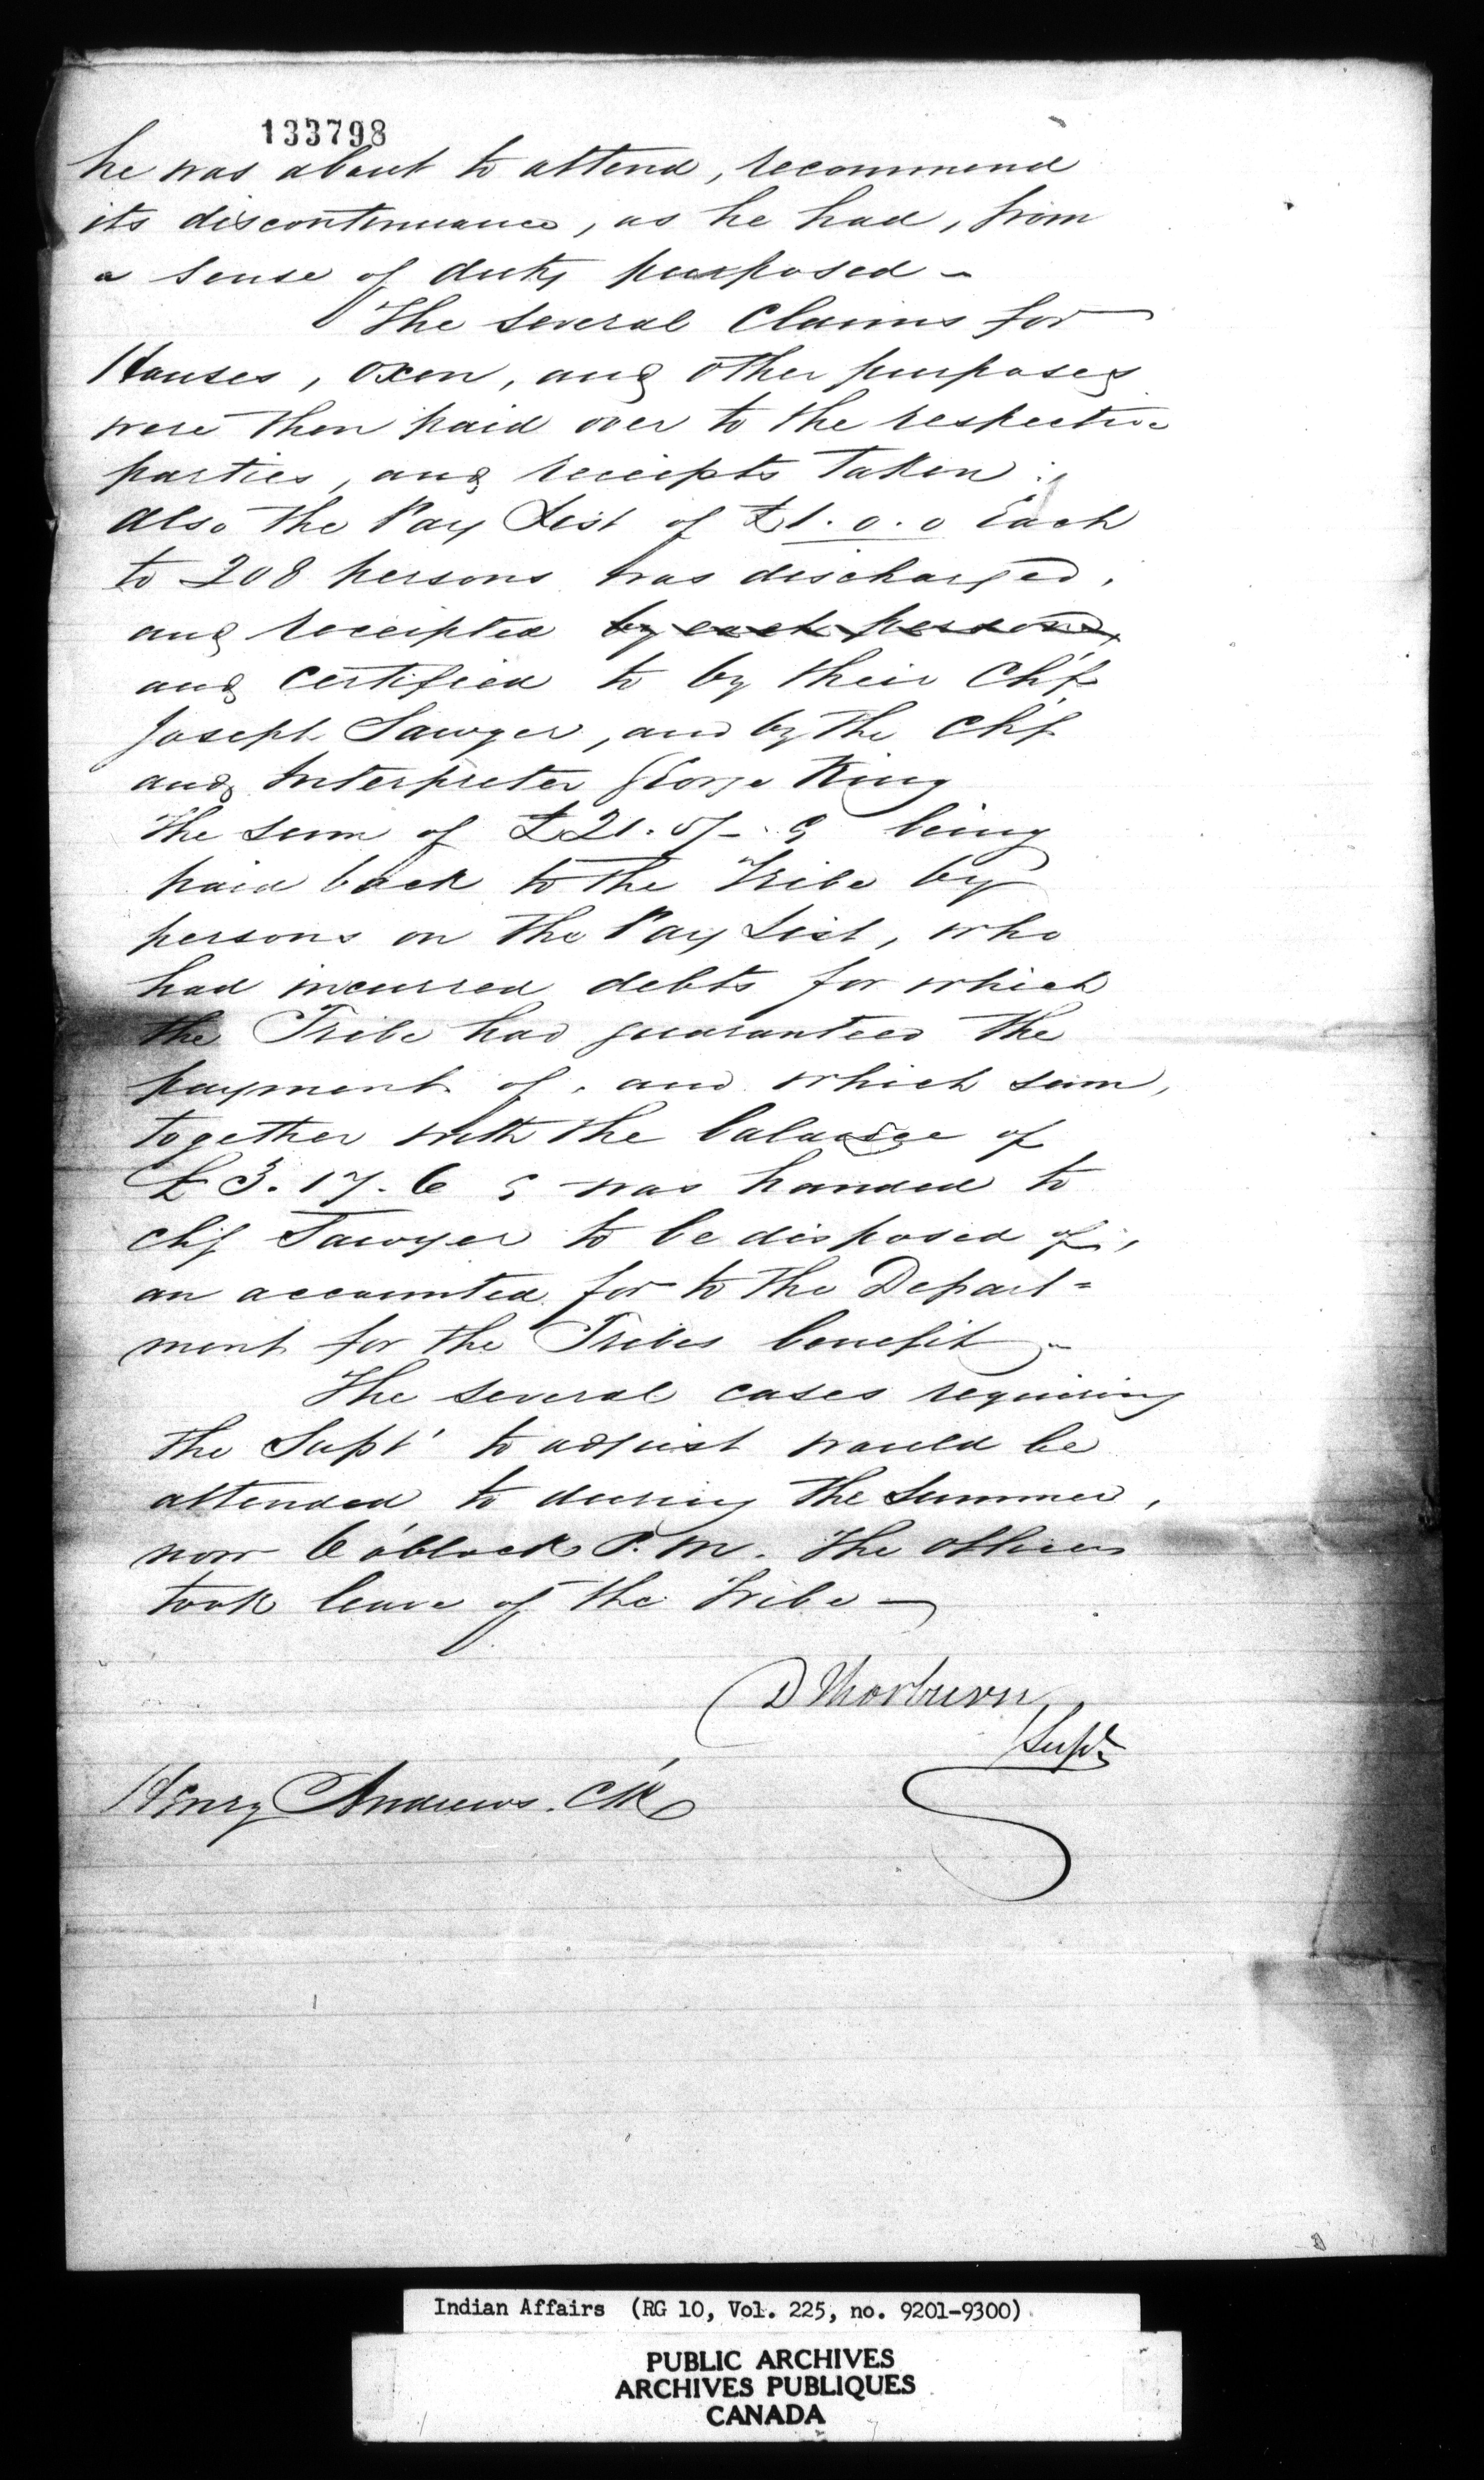 133798
he was about to attend, recommend
its discontinuance, as he had, from
a sense of duty purposed –
The several Claims for
Houses, Oxen, and other purposes
were then paid over to the respective
parties, and receipts Taken.
Also the Pay List of £1.0.0 Each
to 208 persons was discharged,
and receipted by each person,
and certified to by their Ch'f
Joseph Sawyer, and by the Ch'f
and Interpreter George King
The sum of £21. being
paid back to the Tribe by
persons on the Pay List, who
had incurred debts for which
the Tribe had guaranteed the
payment of, and which sum,
together with the balance of
£3.17.6 was handed to
Chf Sawyer to be disposed of,
an accounted for to the Depart=
ment for the Tribes benefit –
The several cases requiring
the Supt' to adjust would be
attended to during the Summer,
now 6 o'clock P.M. The Officers
took leave of the Tribe –
D Thorburn
Supt
Henry Andrews. Clk
Indian Affairs (RG 10, Vol. 225, no. 9201-9300)
PUBLIC ARCHIVES
ARCHIVES PUBLIQUES
CANADA